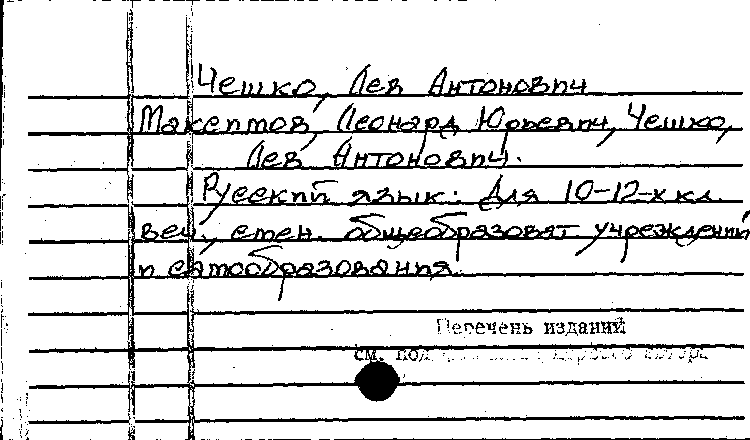 Чешко, Лев Антонович
Макситов, Леонард Юрьевич, Чешко,
Лев Антонович.
Русский язык: Для 10-12-х кл.
веч., смен. общеобразоват учреждений
и самообразования.
Перечень изданий
см. под первого автора